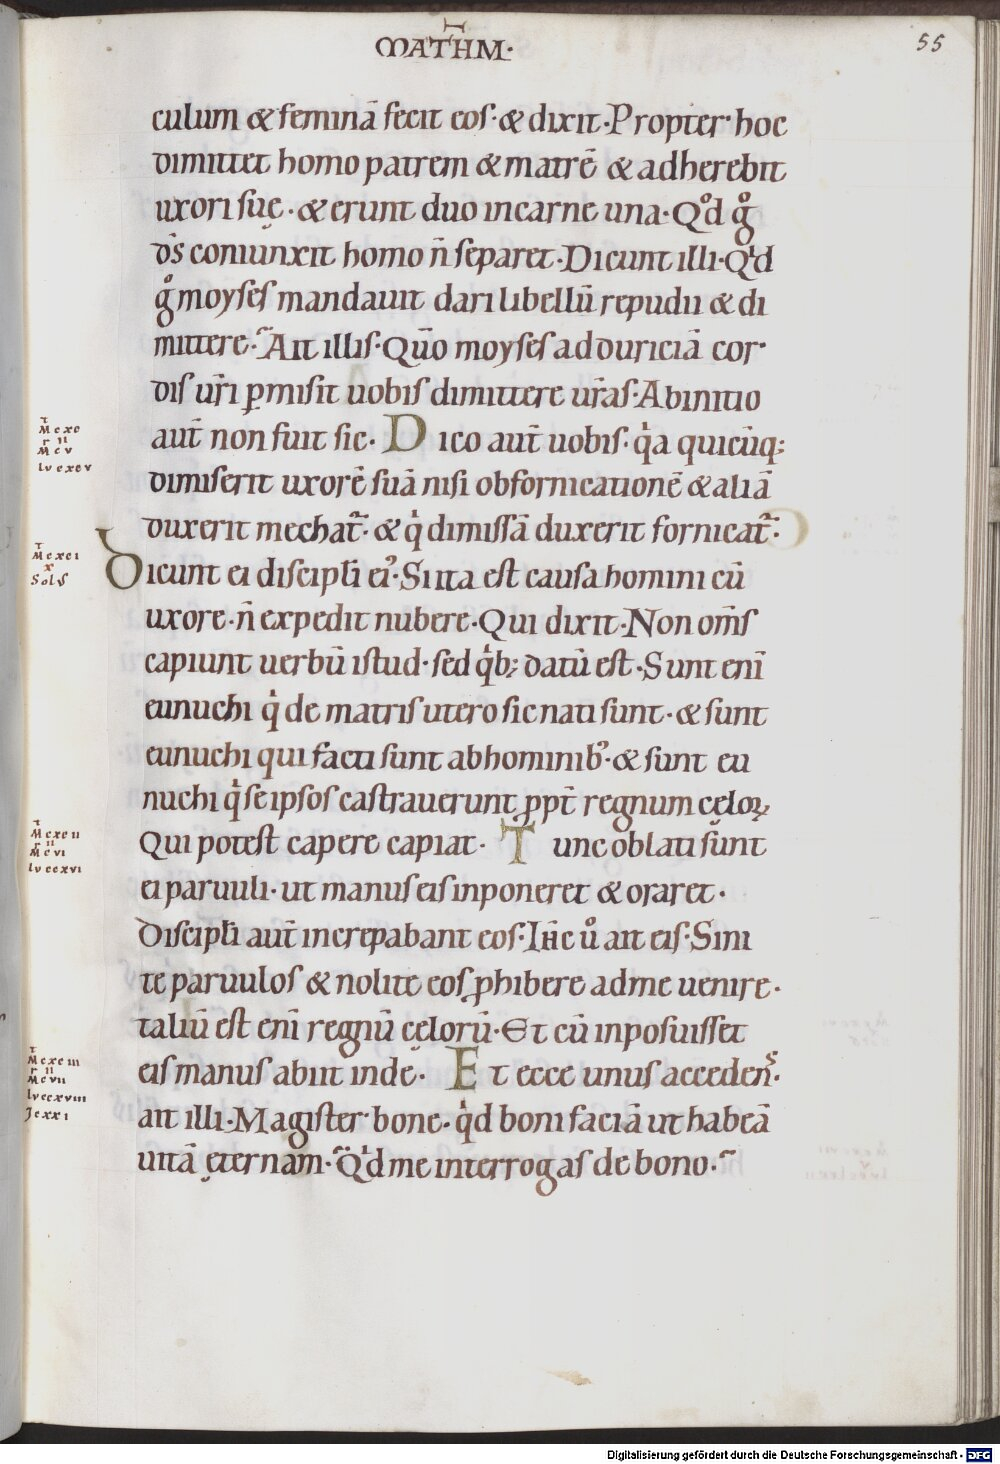 MATHM·
55
culum & feminā fecit eos· & dixit· Propter hoc
dimittet homo patrem & matrē & adherebit
uxori suę· & erunt duo incarne una· Qd̊ g̊
d̄s coniunxit homo n̄ separet· Dicunt illi· Qͥd
g̊ moyses mandauit dari libellū repudii & di
mittere· Ait illis· Qūo moyses adduriciā cor
dis ur̄i ꝑmisit uobis dimittere ur̄as· Abinitio
aut̄ non fuit sic· Dico aut̄ uobis· qͥa quicūq;
dimiserit uxorē suā nisi obfornicationē & aliā
duxerit mechat̄· & qͥ dimissā duxerit fornicat̄·
Dicunt ei discipl̄i ei᾿· Si ita est causa homini cū
uxore· n̄ expedit nubere· Qui dixit· Non om̄s
capiunt uerbū istud· sed qͥb; datū est· Sunt enī
eunuchi qͥ de matris utero sic nati sunt· & sunt
eunuchi qui facti sunt abhominib᾿· & sunt eu
nuchi qͥ se ipsos castrauerunt ꝓpt̄ regnum cęloꝝ
Qui potest capere capiat· Tunc oblati sunt
ei paruuli· ut manus eis inponeret & oraret·
Discipl̄i aut̄ increpabant eos· Ih̄c ů ait eis· Sini
te paruulos & nolite eos ꝓhibere adme uenire·
taliū est enī regnū cęlorū· Et cū inposuisset
eis manus abiit inde· Et ecce unus accedens·
ait illi· Magister bone· qͥd boni faciā ut habeā
uitā ęternam· Qͥd me interrogas de bono·
M cxc
r II
M c v
lv cxcv
M cxci
x
Solus
M cxcii
r II
M c vi
lv ccxvi
M cxciii
r II
M c vii
lv ccxviii
J cxxi
Digitalisierung gefördert durch die Deutsche Forschungsgemeinschaft - DFG